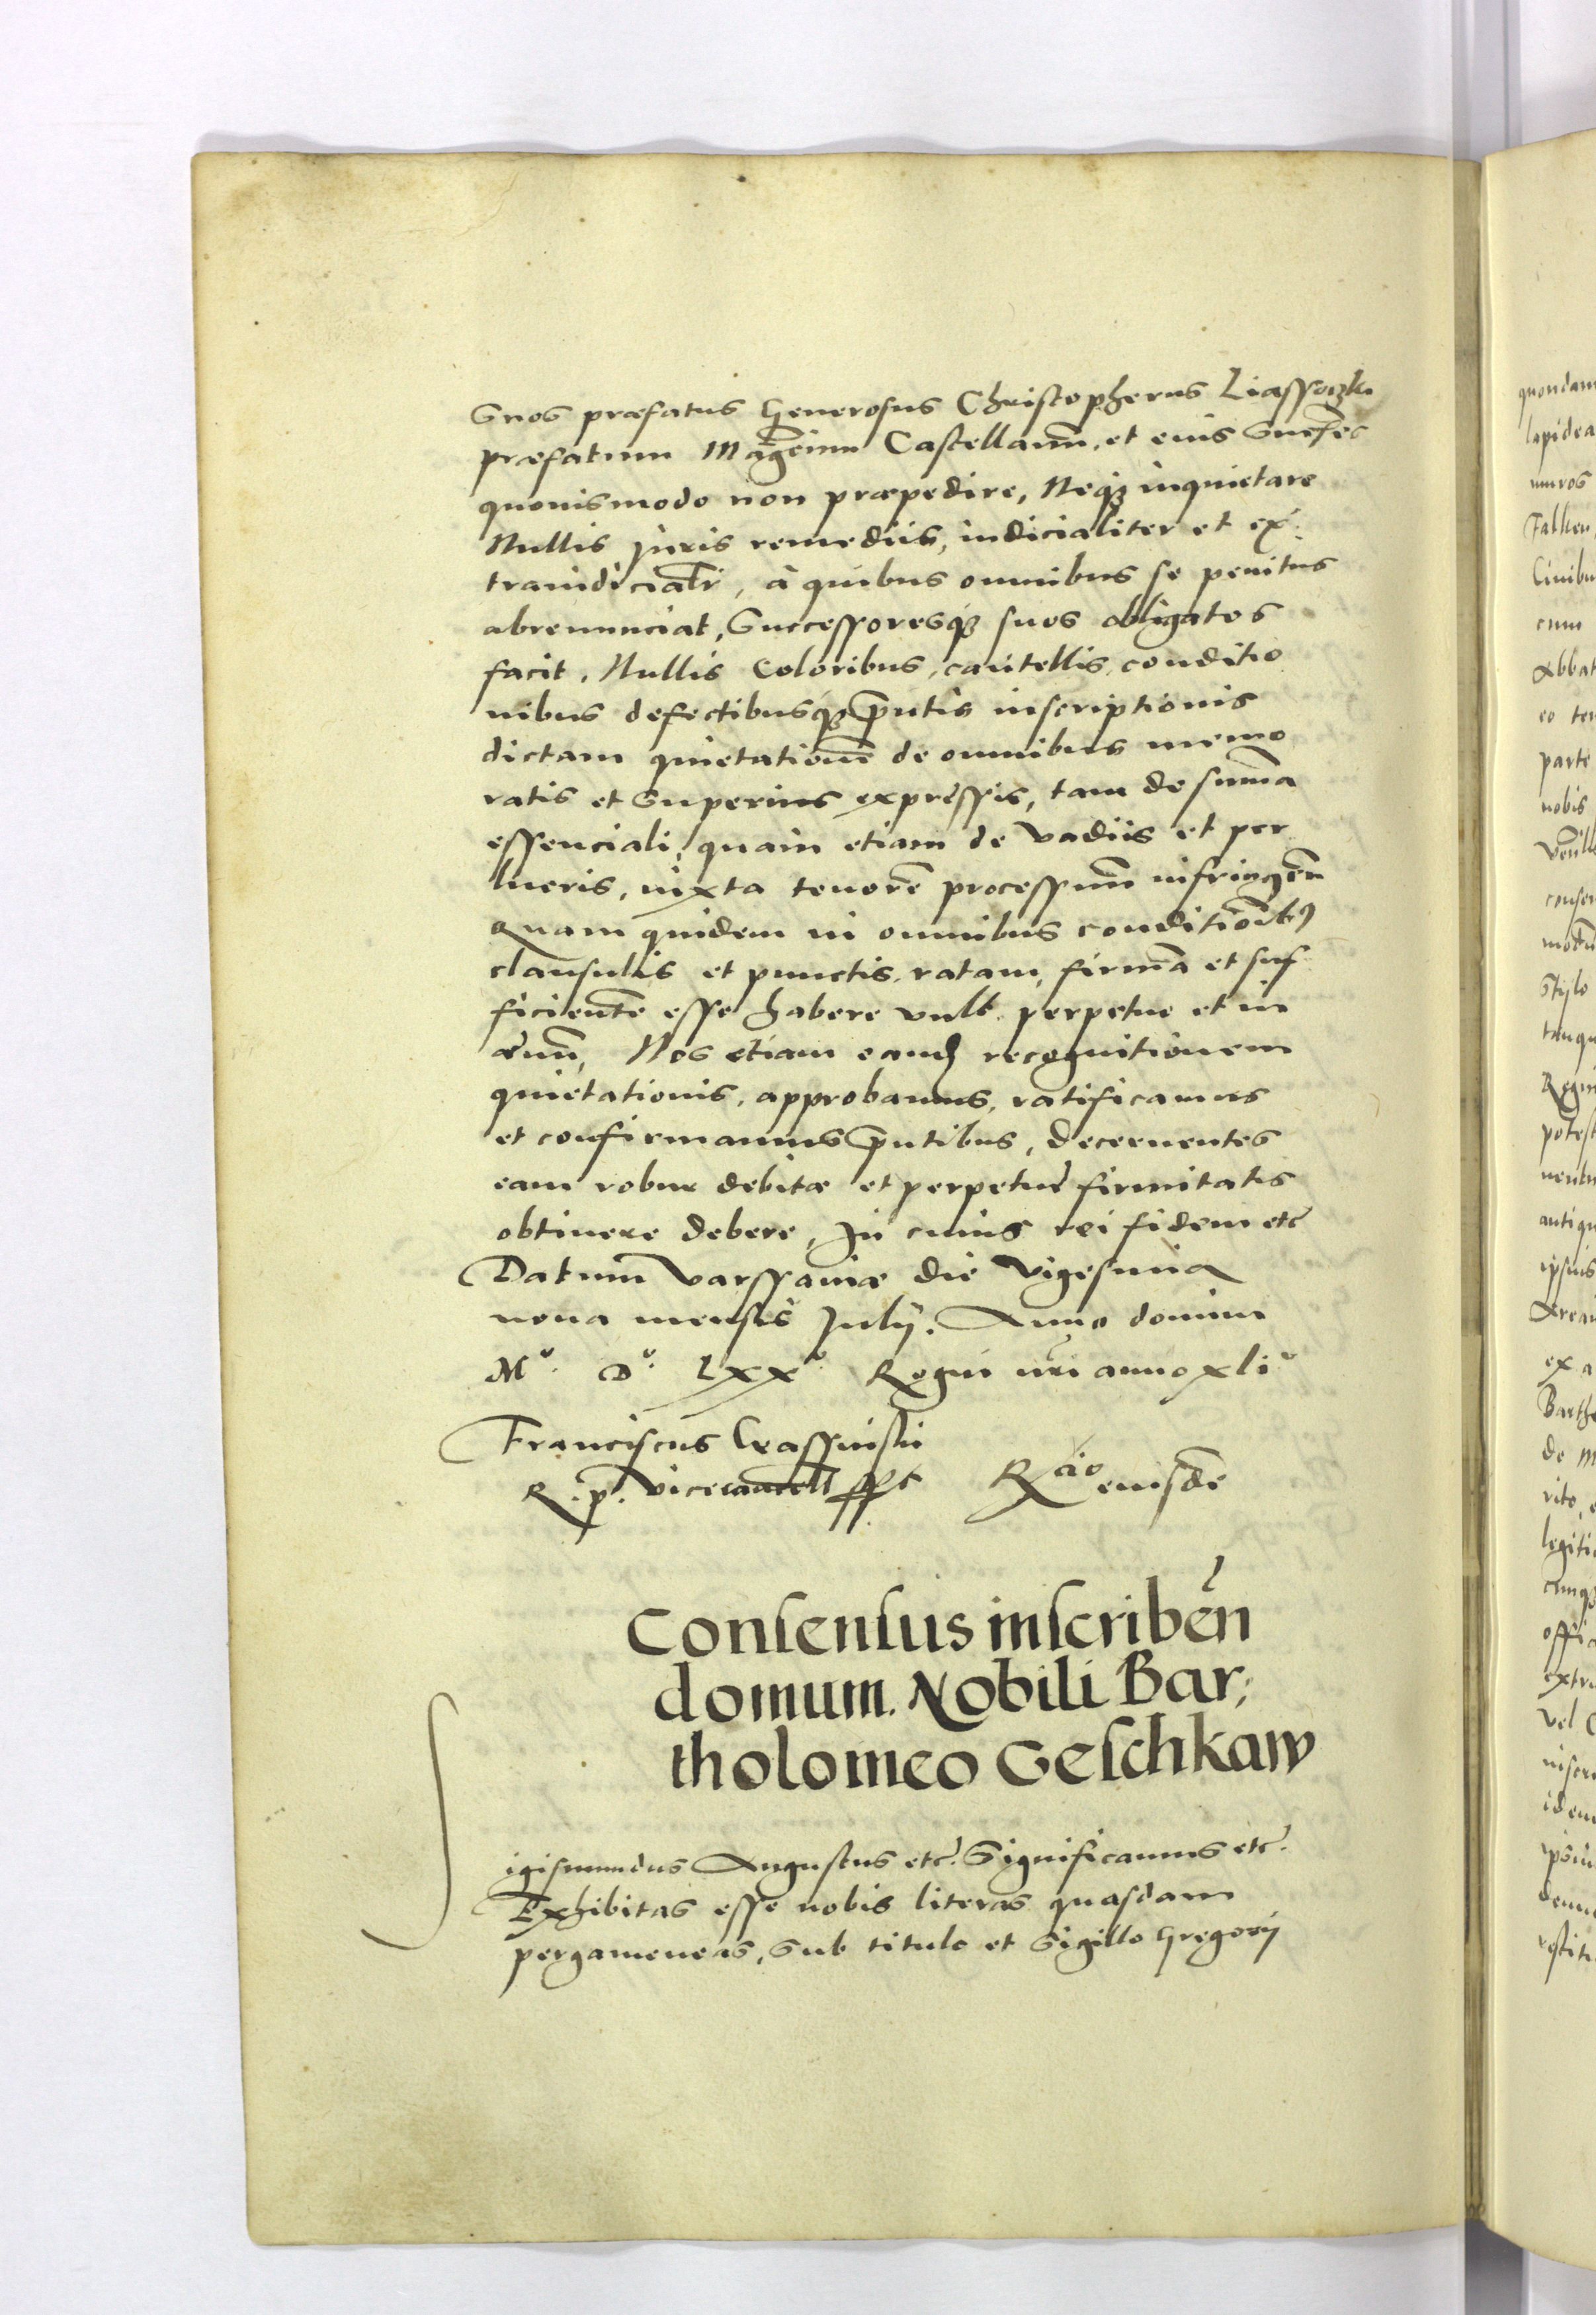 suos præfatus Generosus Christopherus Liassowzki
præfatum Magcium Castellanū, et eius Sucſes
quouismodo non præpedire, Neqȝ inquietare
Nullis Juris remediis, iudicialiter et ex:
traiudicialr, à quibus omnibus se penitus
abrenunciat, Successoresqȝ suos obligatos
facit. Nullis Coloribus, cautellis, conditio
nibus defectibusqȝ pñtis inscriptionis
dictam quietationē de omnibus memo
ratis et superius expressis, tam de sum̄a
essenciali, quam etiam de vadiis et per
lucris, iuxta tenorē processum̄ infringeñ
Quam quidem in omnibus conditioībꝰ
clausulis et punctis, ratam, firmā et suf
ficientē esse habere vult perpetuo et in
æuū, Nos etiam eandȝ recognitionem
quietationis, approbamus, ratificamus
et confirmamus pñtibus, decernentes
eam robur debitæ et perpetuæ firmitatis
obtinere debere, In cuius rei fidem etc
Datum Varssauiæ die Vigesima
nona mensis Julij. Anno domini
Mº. Dº. Lxxº Regni nr̄i anno xliº
Franciscus Crassinski
R. p. Vicecancell sspt Rᵃⁱᵒ eiusdē
Consensus inscribeñ
domum. Nobili Bar;
tholomeo Geschkaw
Sigismundus Augustus etc. Significamus etc.
Exhibitas esse nobis literas quasdam
pergameneas, Sub titulo et Sigillo Gregorij
quondam
lapidea
muros
Falken
Ciuibu
cum
Abbat
eo ten
parte
nobis
conse
Stylo
tanqu
Regni
potest
antiqu
ipsius
Area
ex a
Barth
de M
rito, e
legiti
cumqȝ
offic
extra
vel
inscr
idem
ipsiu